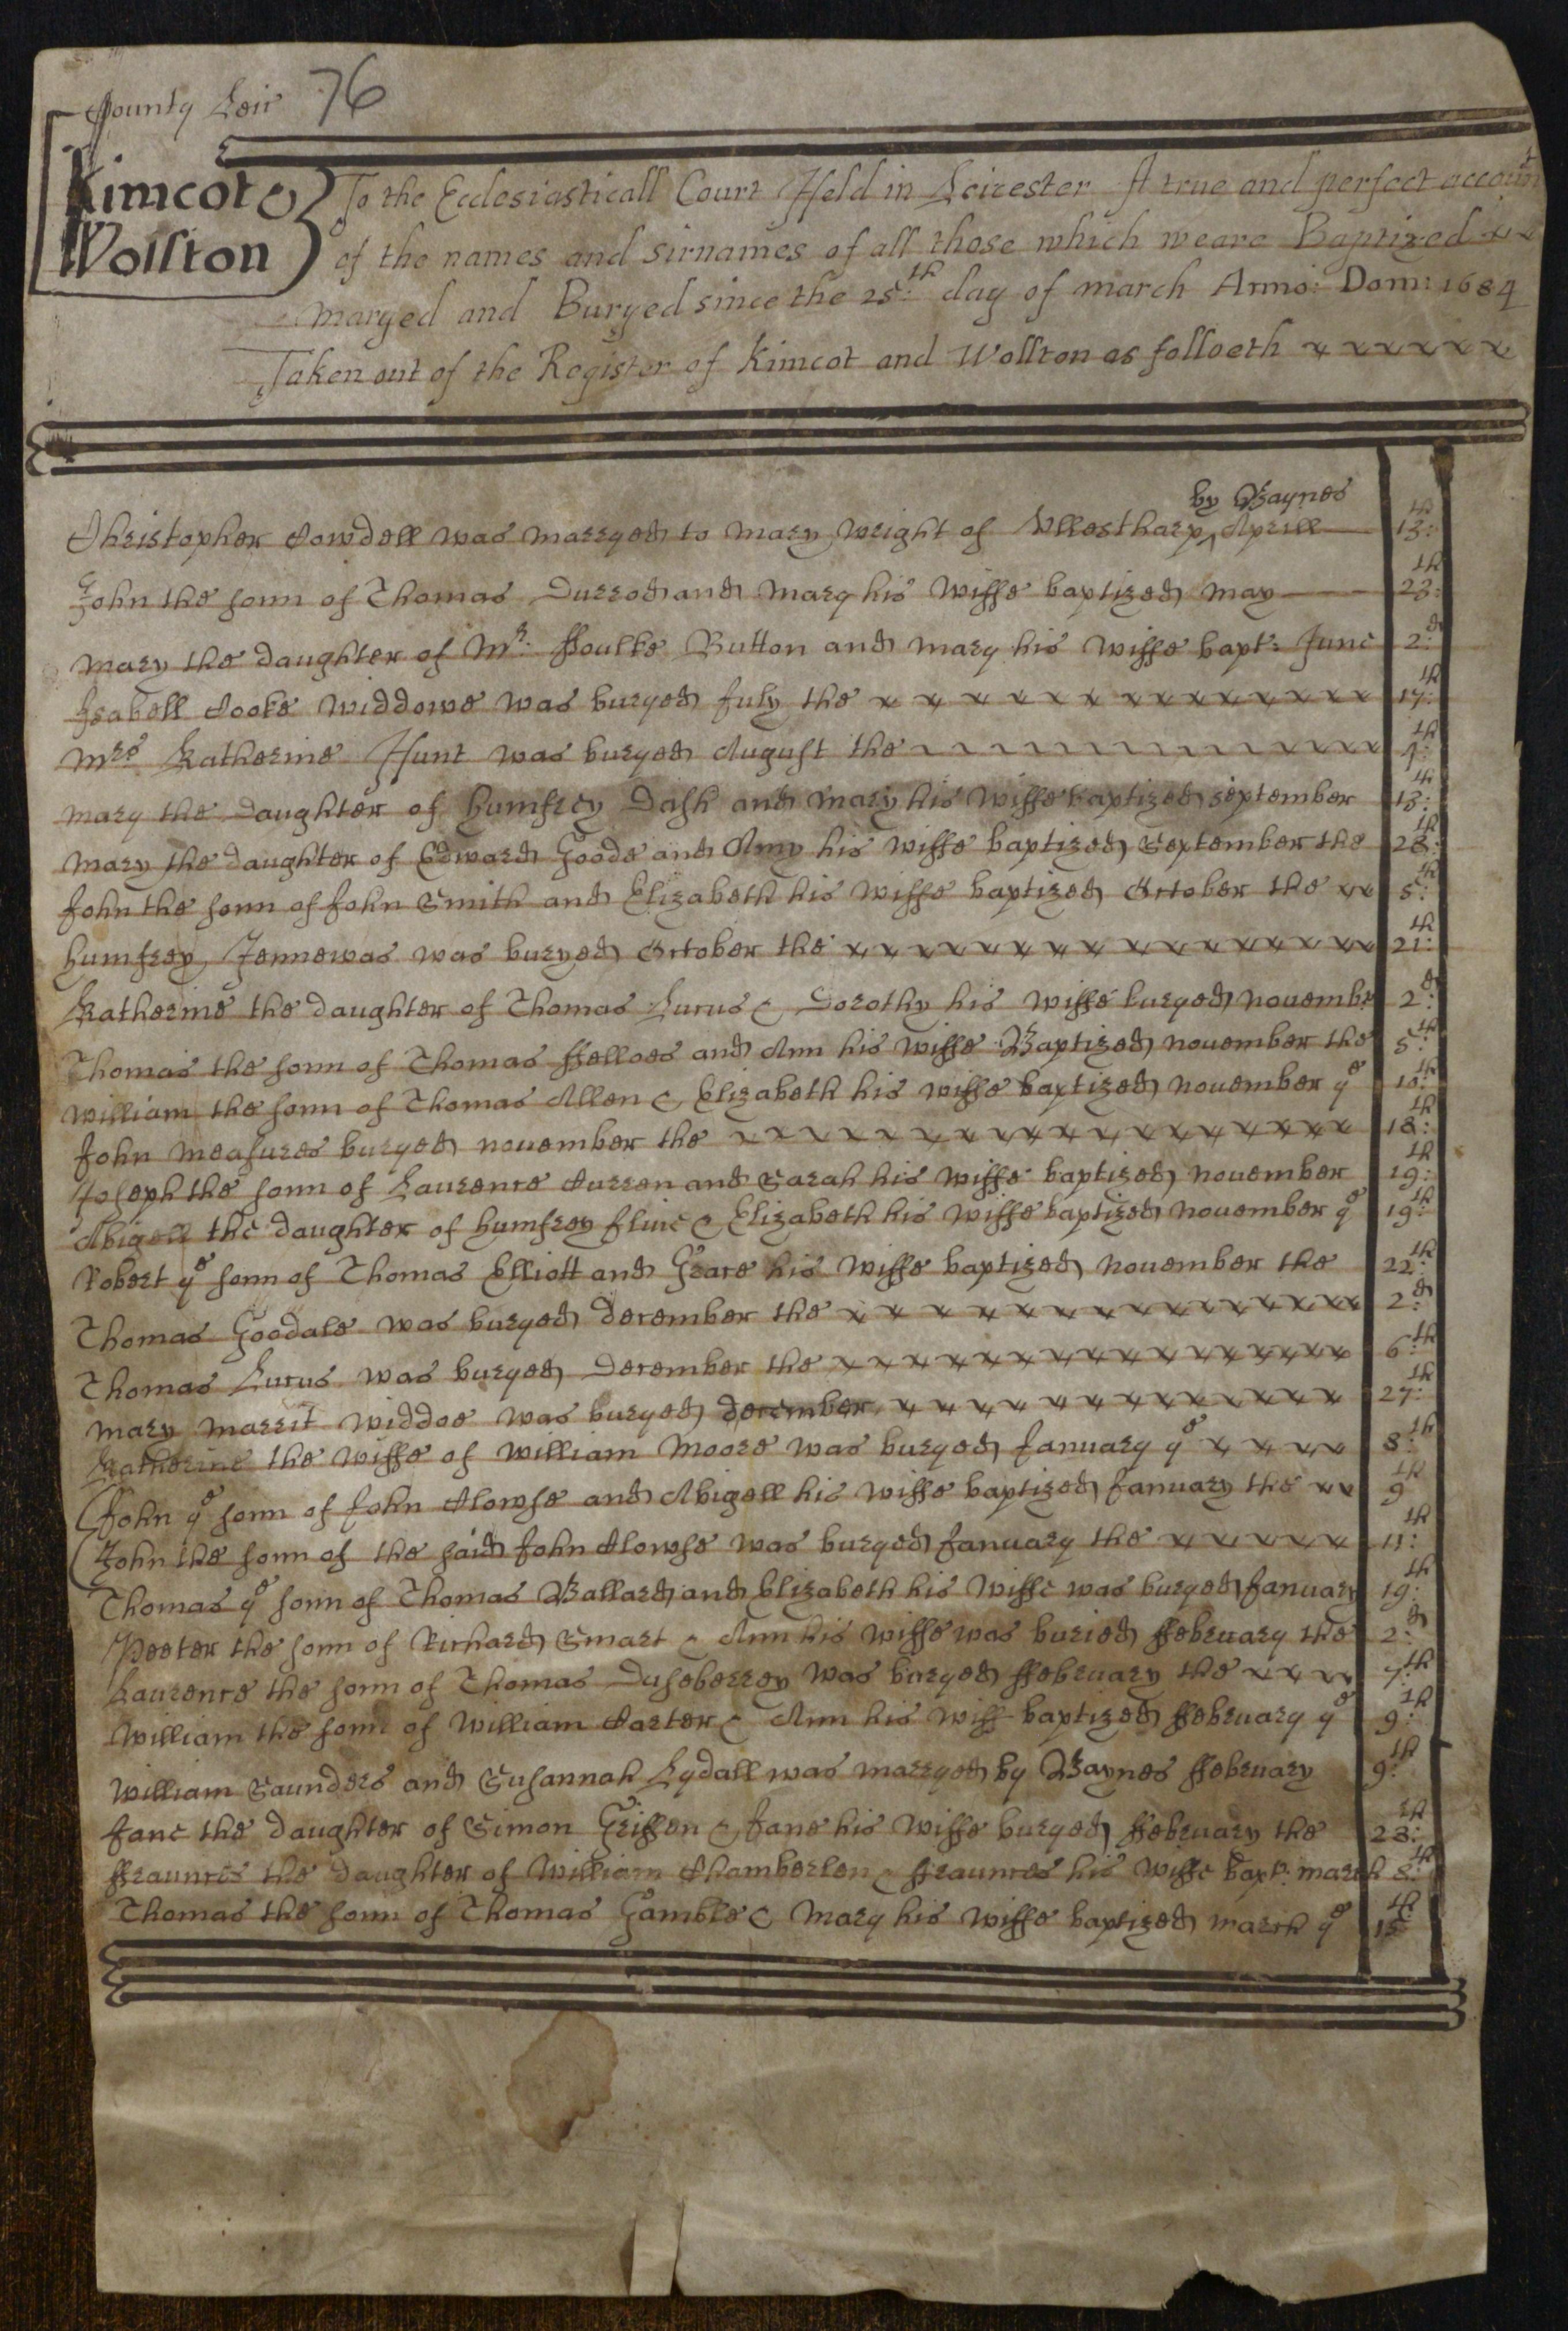 County Leic 76
Kimcot &
Wollton
To the Ecclesiasticall Court Held in Leicester A true and perfect account
of the names and sirnames of all those which weare Baptized
Maryed and Buryed since the 25:th day of march Anno: Dom: 1684
Taken out of the Register of Kimcot and Wollton as folloeth
by Baynes
Christopher Cowdell was marryed to Mary Wright of Ullestharp Aprill 13:th
John the sonn of Thomas Durrod and Mary his wiffe baptized May 23:th
Mary the daughter of Mr. ffoulke Button and Mary his wiffe bapt: June 2:d
Isabell Cooke widdowe was buryed July the 17:th
Mrs Katherine Hunt was buryed August the 1:th
Mary the daughter of Humfrey Dash and Mary his wiffe baptized september 13:th
Mary the daughter of Edward Goode and Amy his wiffe baptized September the 28:th
John the sonn of John Smith and Elizabeth his wiffe baptized October the 5:th
Humfrey Jennewas was buryed October the 21:th
Katherine the daughter of Thomas Lucus & Dorothy his wiffe buryed novembr 2:d
Thomas the sonn of Thomas ffelloes and Ann his wiffe Baptized november the 5:th
William the sonn of Thomas Allen & Elizabeth his wiffe baptized november ye 10:th
John Measures buryed november the 18:th
Joseph the sonn of Laurence Curren and Sarah his wiffe baptized november 19:th
Abigell the daughter of humfrey fline & Elizabeth his wiffe baptized november ye 19:th
Robert ye sonn of Thomas Elliott and Grace his wiffe baptized november the 22:th
Thomas Goodale was buryed december the 2:d
Thomas Lucus was buryed December the 6:th
Mary Marrit widdoe was buryed december 27:th
Katherine the wiffe of William Moore was buryed January ye 8:th
John ye sonn of John Clowse and Abigell his wiffe baptized January the 9th
John the sonn of the said John Clowse was buryed January the 11:th
Thomas ye sonn of Thomas Ballard and Elizabeth his wiffe was buryed January 19:th
Peeter the sonn of Richard Smart & Ann his wiffe was buried ffebruary the 2:d
Laurence the sonn of Thomas Duseberrey was buryed ffebruary the 7:th
William the sonn of William Carter & Ann his wiff baptized ffebruary ye 9:th
William Saunders and Susannah Lydall was marryed by Baynes ffebruary 9:th
Jane the daughter of Simon Griffen & Jane his wiffe buryed ffebruary the 28:th
ffraunces the daughter of William Chamberlen & ffraunces his wiffe bapt: march 8:th
Thomas the sonn of Thomas Gamble & Mary his wiffe baptized march ye 15th